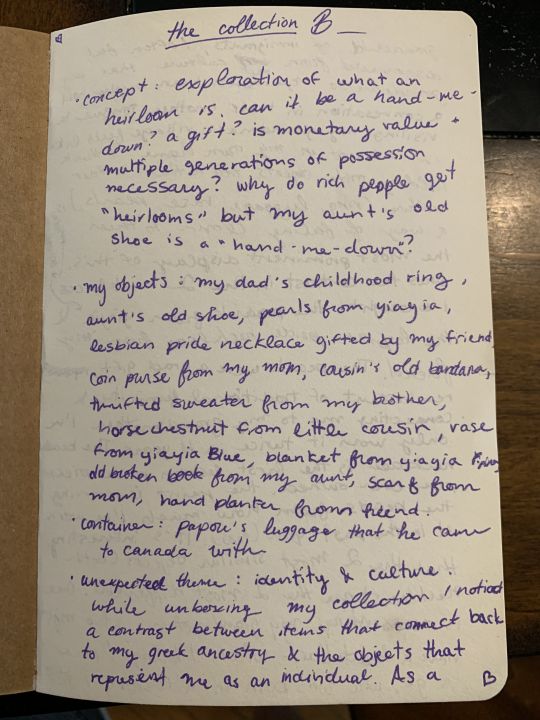 the collection B
· concept : exploration of what an
heirloom is. can it be a hand-me-
down? a gift? is monetary value +
multiple generations of possession
necessary? why do rich people get
"heirlooms" but my aunt's old
shoe is a "hand-me-down"?
· my objects : my dad's childhood ring,
aunt's old shoe, pearls from yiayia,
lesbian pride necklace gifted by my friend,
coin purse from my mom, cousin's old bandana,
thrifted sweater from my brother,
horse chestnut from little cousin, vase
from yiayia Blue, blanket from yiayia
old broken book from my aunt, scarf from
mom, hand planter from friend.
· container : papou's luggage that he came
to canada with
· unexpected theme : identity & culture.
while unboxing my collection I noticed
a contrast between items that connect back
to my greek ancestry & the objects that
represent me as an individual. As a
B